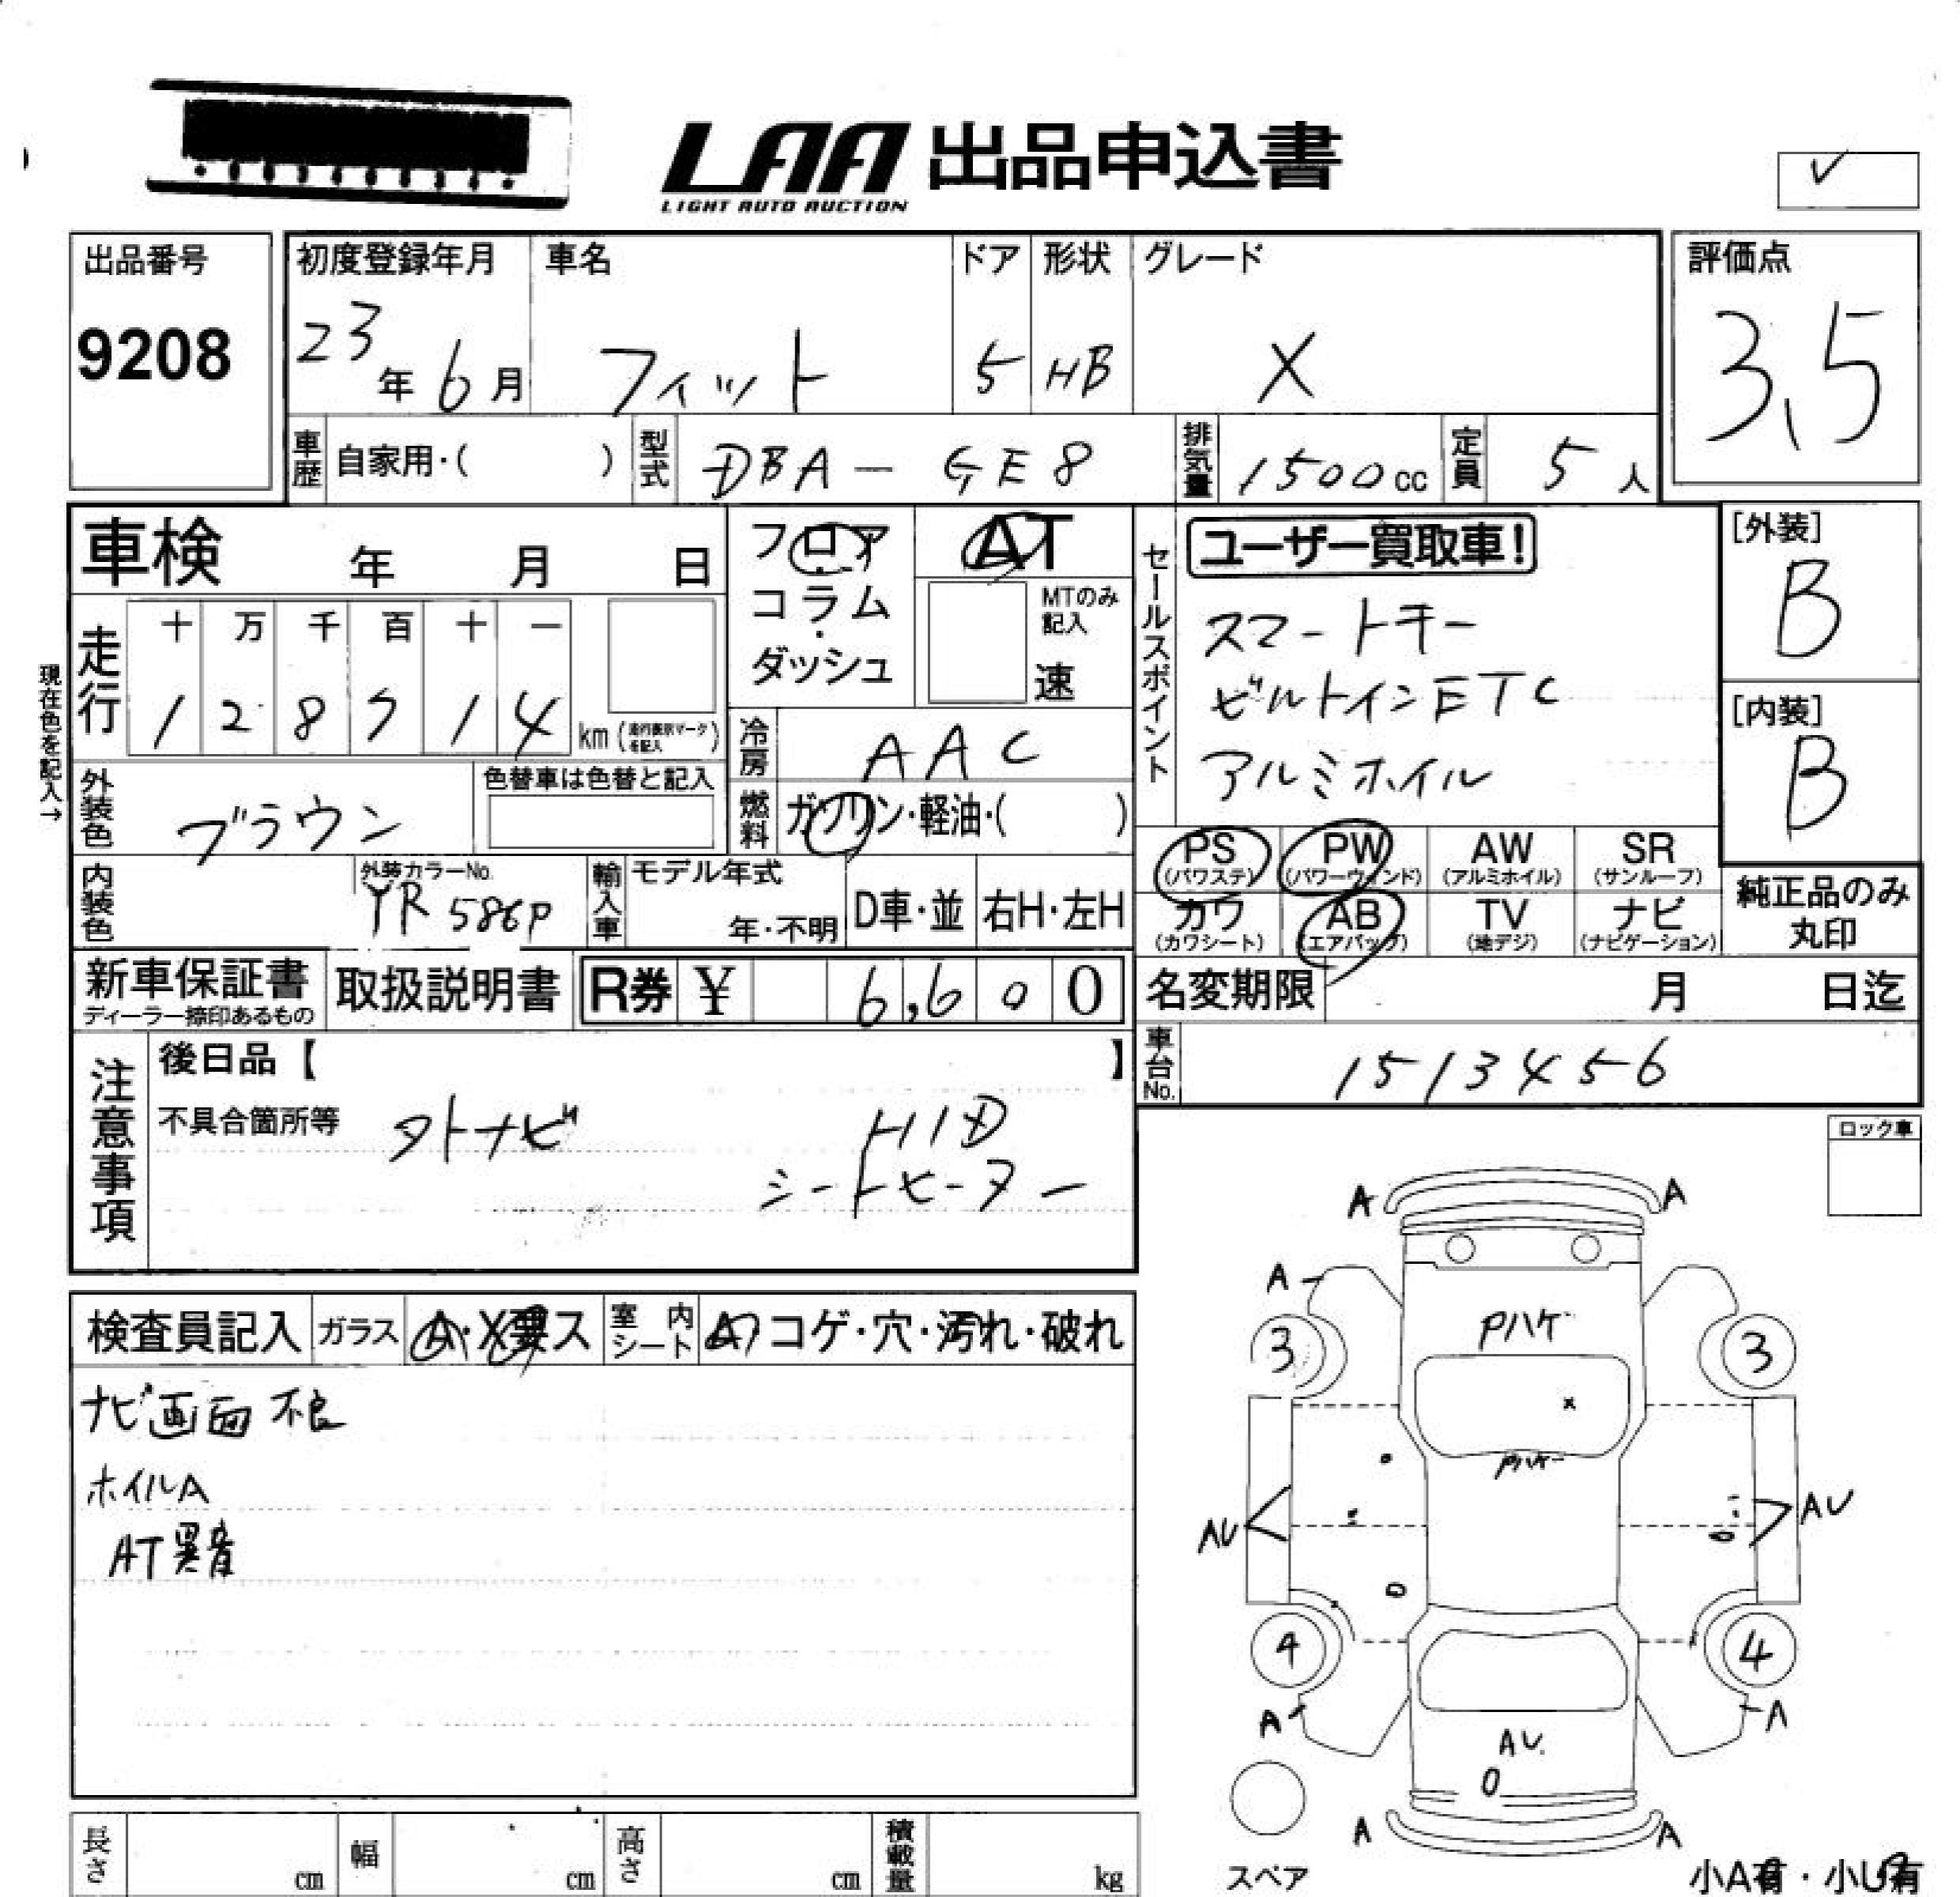 LAA 出品申込書
LIGHT AUTO AUCTION
✓
出品番号
9208
初度登録年月
23年6月
車名
フィット
ドア
5
形状
HB
グレード
X
評価点
3.5
車歴 自家用・( )
型式 DBA-GE8
排気量 1500cc
定員 5人
車検 年 月 日
走行
十 万 千 百 十 一
1 2 8 7 1 4 km
現在色を記入→
フロア
コラム
・
ダッシュ
AT
MTのみ
記入
速
セールスポイント
ユーザー買取車!
スマートキー
ビルトインETC
アルミホイル
[外装]
B
[内装]
B
冷房 AAC
燃料 ガソリン・軽油・( )
外装色 ブラウン
色替車は色替と記入
内装色
外装カラーNo.
YR586P
輸入車
モデル年式
年・不明
D車・並
右H・左H
PS (パワステ)
PW (パワーウィンド)
AW (アルミホイル)
SR (サンルーフ)
カワ (カワシート)
AB (エアバッグ)
TV (地デジ)
ナビ (ナビゲーション)
純正品のみ
丸印
新車保証書
ディーラー捺印あるもの
取扱説明書
R券 ¥ 6,600
名変期限 月 日迄
車台No. 1513456
注意事項
後日品【 】
不具合箇所等
タトナビ HID
シートヒーター
ロック車
検査員記入
ガラス A・X要ス
室内シート コゲ・穴・汚れ・破れ
ナビ画面不良
ホイルA
AT異音
A A
A
Pハゲ
3 3
x
Pハゲ
AU AU
4 4
A A
AU
A A
スペア
小A有・小U有
長さ cm
幅 cm
高さ cm
積載量 kg